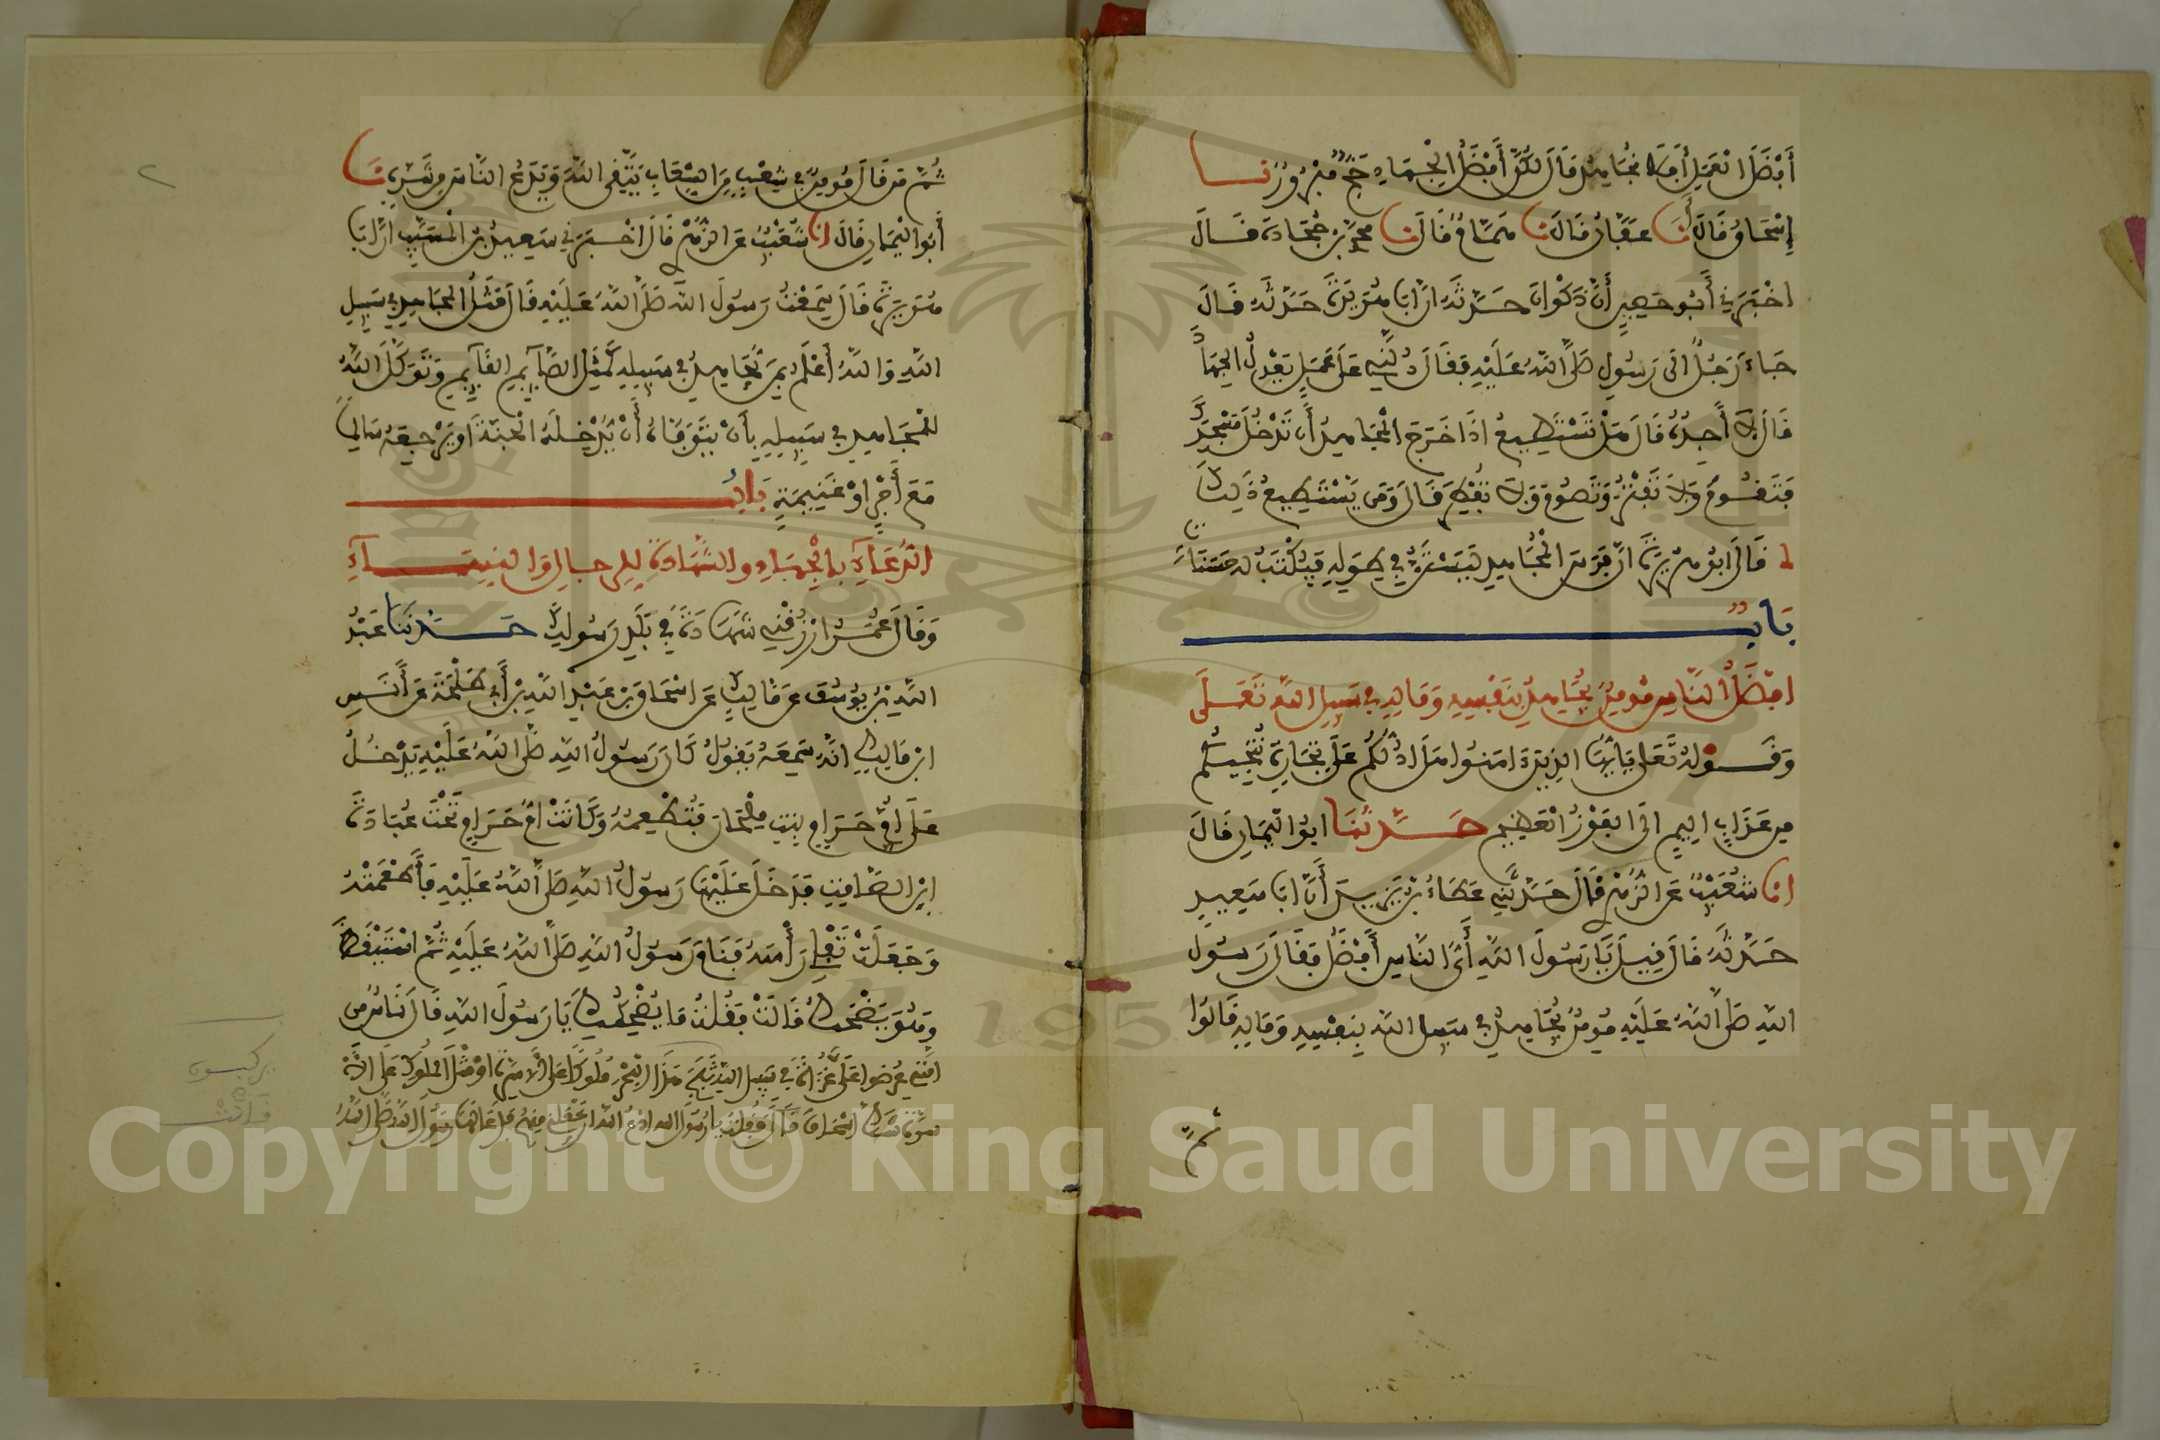 أَفْضَلَ الْعَمَلِ أَفَلَا نُجَاهِدُ قَالَ لَكُنَّ أَفْضَلُ الْجِهَادِ حَجٌّ مَبْرُورٌ نا
إِسْحَاقُ قَالَ أَنَا عَفَّانُ قَالَ نا هَمَّامٌ قَالَ نا مُحَمَّدُ بْنُ جُحَادَةَ قَالَ
اخْبَرَنِي أَبُو حَصِينٍ أَنَّ ذَكْوَانَ حَدَّثَهُ انَّ ابَا هُرَيْرَةَ حَدَّثَهُ قَالَ
جَاءَ رَجُلٌ الَى رَسُولِ صَلَّى اللهُ عَلَيْهِ فَقَالَ دُلَّنِي عَلَى عَمَلٍ يَعْدِلُ الْجِهَادَ
قَالَ لَا أَجِدُهُ قَالَ هَلْ تَسْتَطِيعُ اذَا خَرَجَ الْمُجَاهِدُ أَن تَدْخُلَ مَسْجِدَكَ
فَتَقُومَ وَلَا تَفْتُرَ وَتَصُومَ وَلَا تُفْطِرَ قَالَ وَمَن يَسْتَطِيعُ ذَلِكَ
قَالَ ابُو هُرَيْرَةَ انَّ فَرَسَ الْمُجَاهِدِ لَيَسْتَنُّ فِي طِوَلِهِ فَيُكْتَبُ لَهُ حَسَنَاتٍ
بَابٌ
افْضَلُ النَّاسِ مُومِنٌ يُجَاهِدُ بِنَفْسِهِ وَمَالِهِ فِي سَبِيلِ اللهِ تَعَلَى
وَقَوْلهُ تَعَلى يَايُّهَا الذِينَ امَنُوا هَلَ ادُلُّكُمْ عَلَى تِجَارَةٍ تُنْجِيكُمْ
مِن عَذَابٍ الِيمٍ الَى الفَوْزُ الْعَظِيمُ حَدَّثَنَا ابُو الْيَمَانِ قَالَ
انا شُعَيْبٌ عَنِ الزُّهْرِي قَالَ حَدَّثَنِي عَطَاءُ بْنُ يَزِيدَ أَنَّ ابَا سَعِيدٍ
حَدَّثَهُ قَالَ قِيلَ يَا رَسُولَ اللهِ أَيُّ النَّاسِ أَفْضَلُ فَقَالَ رَسُولُ
اللهِ صَلَّى اللهُ عَلَيْهِ مُومِنٌ يُجَاهِدُ فِي سَبِيلِ اللهِ بِنَفْسِهِ وَمَالِهِ قَالُوا
ثُمَّ
ثُمَّ مَن قَالَ مُومِنٌ فِي شِعْبٍ مِنَ الشِّعَابِ يَتَّقِي اللهَ وَيَدَعُ النَّاسَ مِن شَرِّهِ نا
أَبُو الْيَمَانِ قَالَ انا شُعَيْبٌ عَنِ الزُّهْرِي قَالَ اخْبَرَنِي سَعِيدُ بْنُ الْمُسَيِّبِ انَّ ابَا
هُرَيْرَةَ قَالَ سَمِعْتُ رَسُولَ اللهِ صَلَّى اللهُ عَلَيْهِ قَالَ مَثَلُ الْمُجَاهِدِ فِي سَبِيلِ
اللهِ وَاللهُ أَعْلَمُ بِمَن يُّجَاهِدُ فِي سَبِيلِهِ كَمَثَلِ الصَّآيِمِ القَآيِمِ وَتَوَكَّلَ اللهُ
لِلْمُجَاهِدِ فِي سَبِيلِهِ بِأَنْ يَتَوَفَّاهُ أَنْ يُدْخِلَهُ الْجَنَّةَ اَو يَرْجِعَهُ سَالِمًا
مَعَ أَجْرٍ اَوْ غَنِيمَةٍ بَابُ
الدُّعَاءِ بِالْجِهَادِ وَالشَّهَادَةِ لِلرِّجَالِ وَالنِسَاءِ
وَقَالَ عُمَرُ ارْزُقْنِي شَهَادَةً فِي بَلَدِ رَسُولِكَ حَدَّثَنَا عَبْدُ
اللهِ بْنُ يُوسُفَ عَن مَّالِكٍ عَنِ اسْحَاقَ بْنِ عَبْدِ اللهِ بْنِ أَبِي طَلْحَةَ عَن أَنَسِ
ابْنِ مَالِكٍ انَّهُ سَمِعَهُ يَقُولُ كَانَ رَسُولُ اللهِ صَلَّى اللهُ عَلَيْهِ يَدْخُلُ
عَلَى أُمِّ حَرَامٍ بِنتِ مِلْحَانَ فَتُطْعِمُهُ وَكَانَتْ امُّ حَرَامٍ تَحْتَ عُبَادَةَ
ابْنِ الصَّامِتِ فَدَخَلَ عَلَيْهَا رَسُولُ اللهِ صَلَّى اللهُ عَلَيْهِ فَأَطْعَمَتْهُ
وَجَعَلَتْ تَفْلِي رَأْسَهُ فَنَامَ رَسُولُ اللهِ صَلَّى اللهُ عَلَيْهِ ثُمَّ اسْتَيْقَظَ
وَهُوَ يَضْحَكُ قَالَتْ فَقُلْتُ مَا يُضْحِكُكَ يَا رَسُولَ اللهِ قَالَ نَاسٌ مِن
امَّتِي عُرِضُوا عَلَيَّ غُزَاةً فِي سَبِيلِ اللهِ يَرْكَبُونَ ثَبَجَ هَذَا الْبَحْرِ مُلُوكًا عَلَى الْاسِرَّةِ اوْ مِثْلَ الْمُلُوكِ عَلَى الاسِرَّةِ
شَكَّ اسْحَاقُ قَالَتْ فَقُلْتُ يَا رَسُولَ اللهِ ادْعُ اللهَ ان يَجْعَلَنِي مِنْهُمْ فَدَعَا لَهَا رَسُولُ اللهِ صَلَّى اللهُ
يركبون
قالت
٢
1957
Copyright © King Saud University